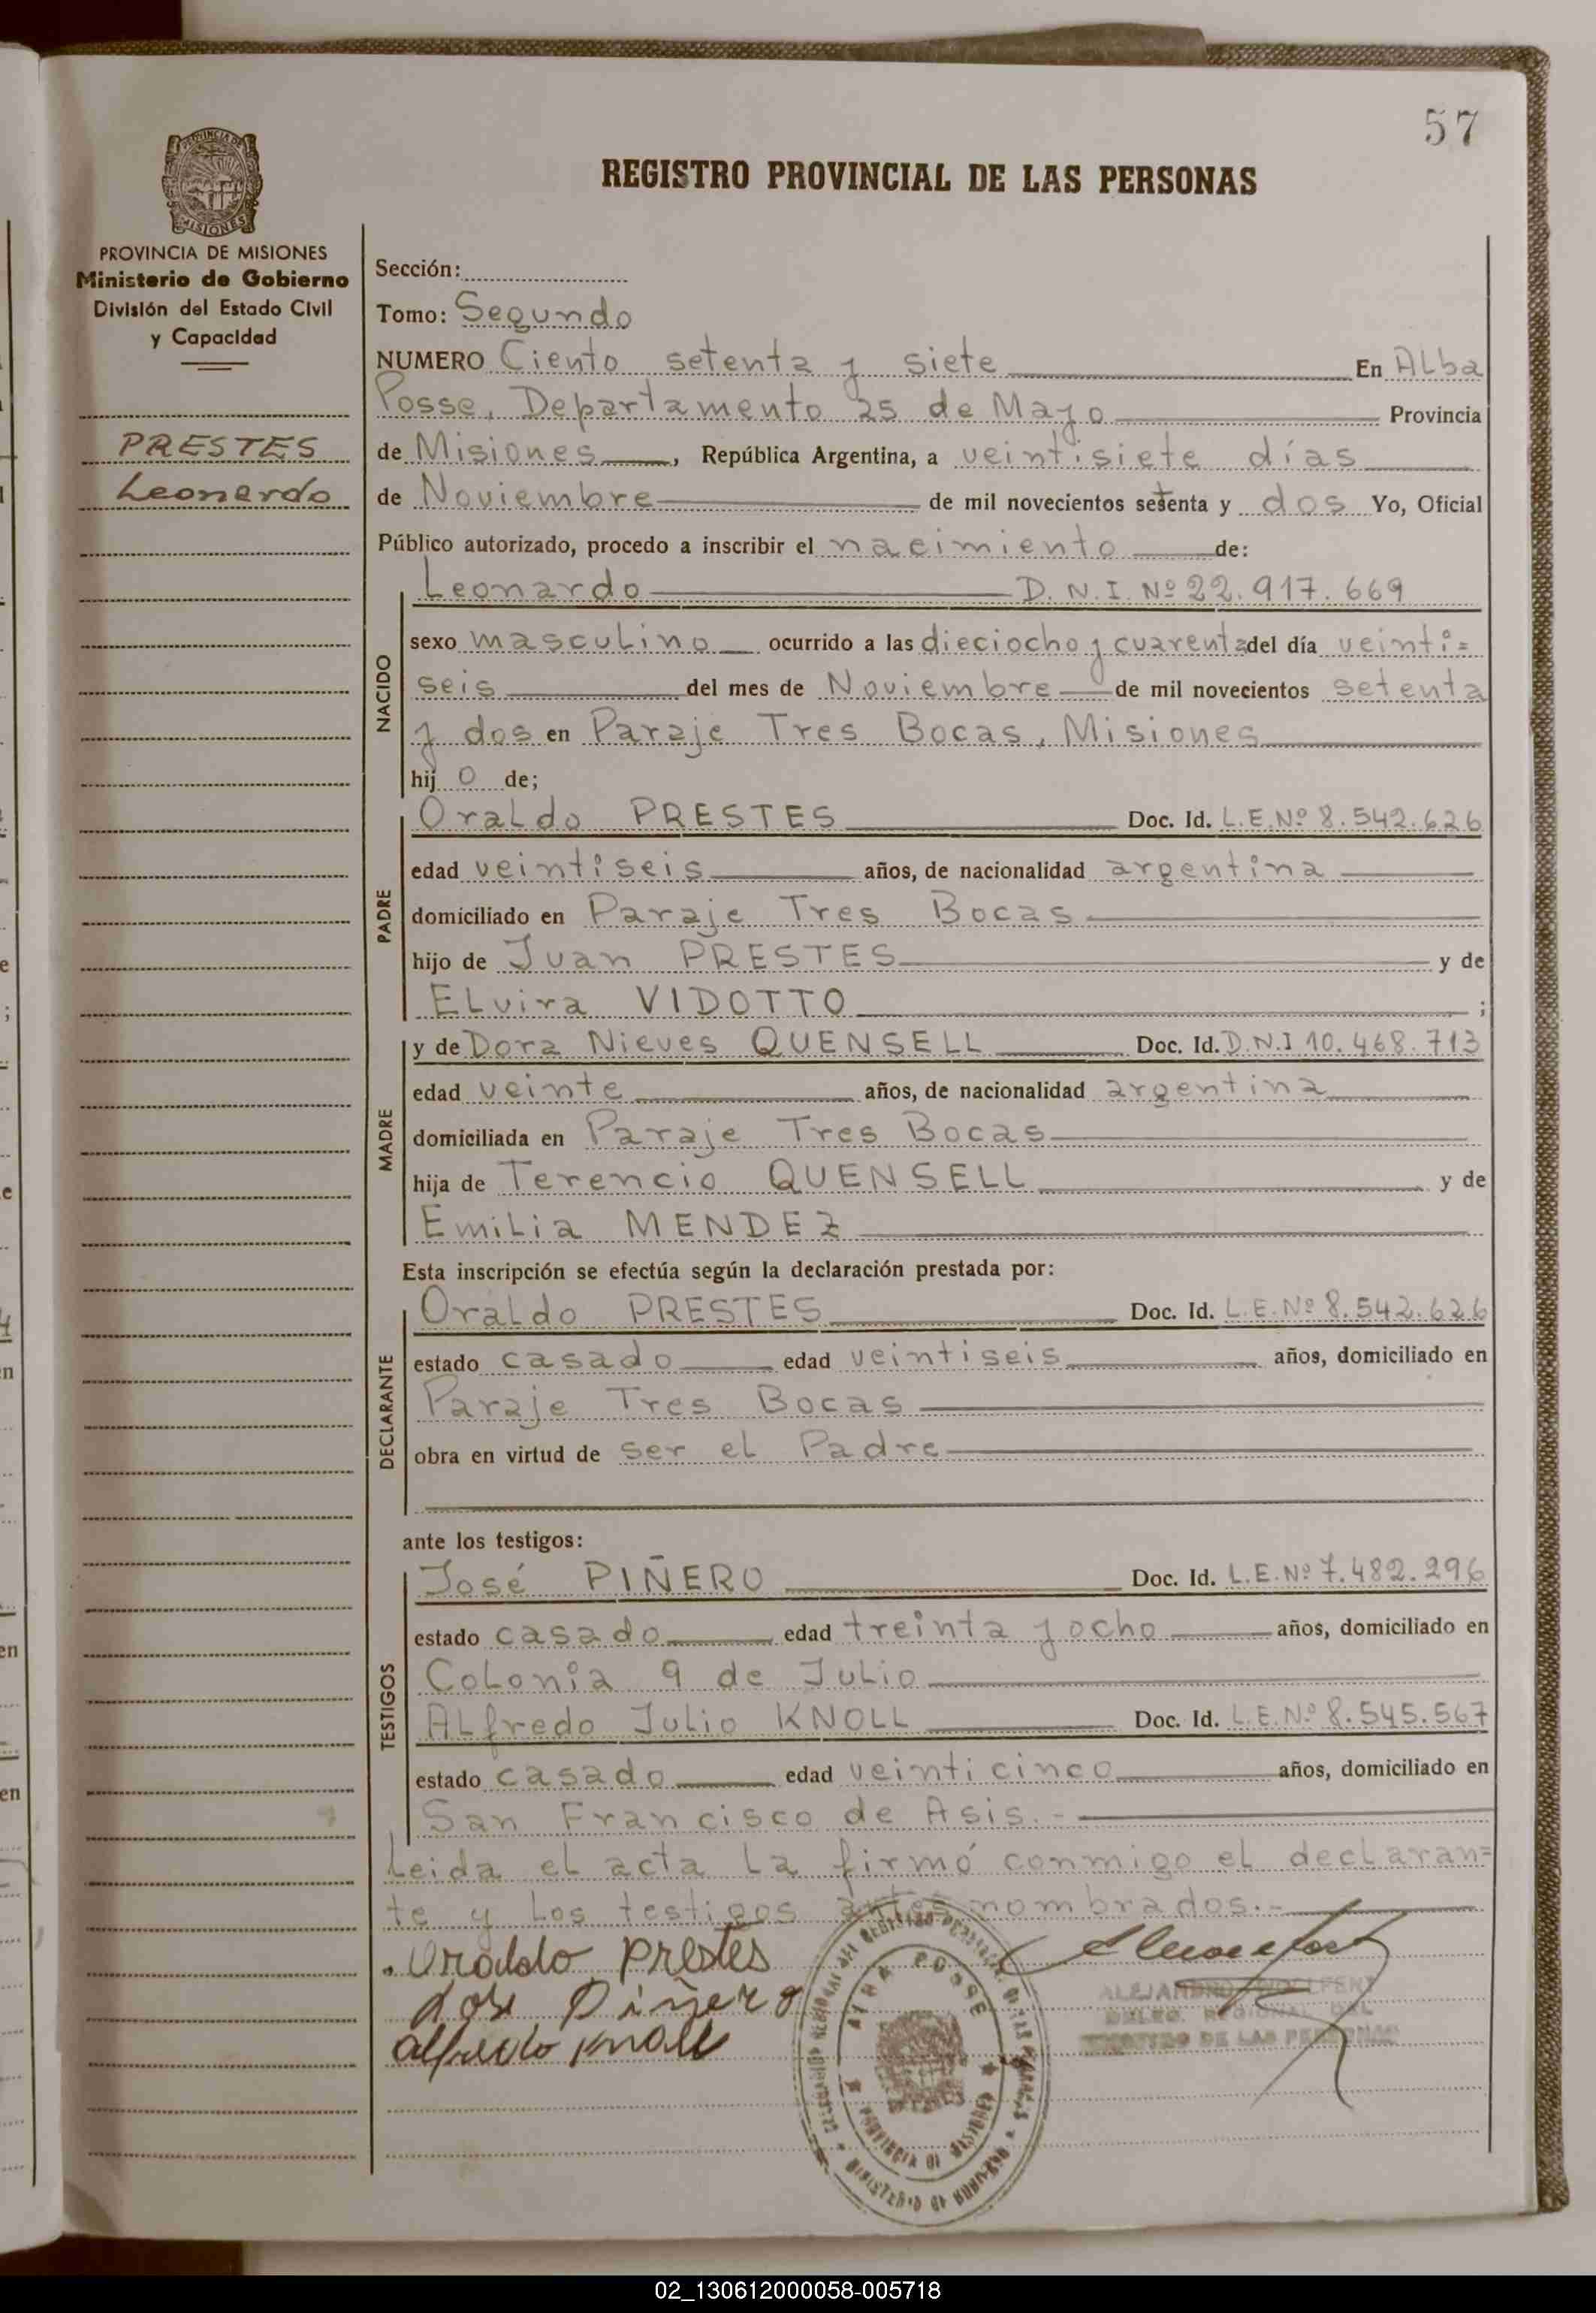 57
REGISTRO PROVINCIAL DE LAS PERSONAS
PROVINCIA DE MISIONES
Ministerio de Gobierno
División del Estado Civil
y Capacidad
PRESTES
Leonardo
Sección:
Tomo: Segundo
NUMERO Ciento setenta y siete En Alba
Posse, Departamento 25 de Mayo Provincia
de Misiones, República Argentina, a veintisiete días
de Noviembre de mil novecientos setenta y dos Yo, Oficial
Público autorizado, procedo a inscribir el nacimiento de:
NACIDO
Leonardo D.N.I. Nº 22.917.669
sexo masculino ocurrido a las dieciocho y cuarenta del día veinti=
seis del mes de Noviembre de mil novecientos setenta
y dos en Paraje Tres Bocas, Misiones
hij o de;
PADRE
Oraldo PRESTES Doc. Id. L.E.Nº 8.542.626
edad veintiseis años, de nacionalidad argentina
domiciliado en Paraje Tres Bocas
hijo de Juan PRESTES y de
Elvira VIDOTTO ;
MADRE
y de Dora Nieves QUENSELL Doc. Id. D.N.I 10.468.713
edad veinte años, de nacionalidad argentina
domiciliada en Paraje Tres Bocas
hija de Terencio QUENSELL y de
Emilia MENDEZ
Esta inscripción se efectúa según la declaración prestada por:
DECLARANTE
Oraldo PRESTES Doc. Id. L.E.Nº 8.542.626
estado casado edad veintiseis años, domiciliado en
Paraje Tres Bocas
obra en virtud de ser el Padre
ante los testigos:
TESTIGOS
José PIÑERO Doc. Id. L.E.Nº 7.482.296
estado casado edad treinta y ocho años, domiciliado en
Colonia 9 de Julio
Alfredo Julio KNOLL Doc. Id. L.E.Nº 8.545.567
estado casado edad veinticinco años, domiciliado en
San Francisco de Asis.-
Leida el acta la firmó conmigo el declaran=
te y los testigos antes nombrados.-
Oraldo Prestes
José Piñero
Alfredo Knoll
ALBA POSSE
PROVINCIA DE MISIONES
MINISTERIO DE GOBIERNO
ALEJANDRO
DELEG. REGIONAL DEL
REGISTRO DE LAS PERSONAS
02_130612000058-005718